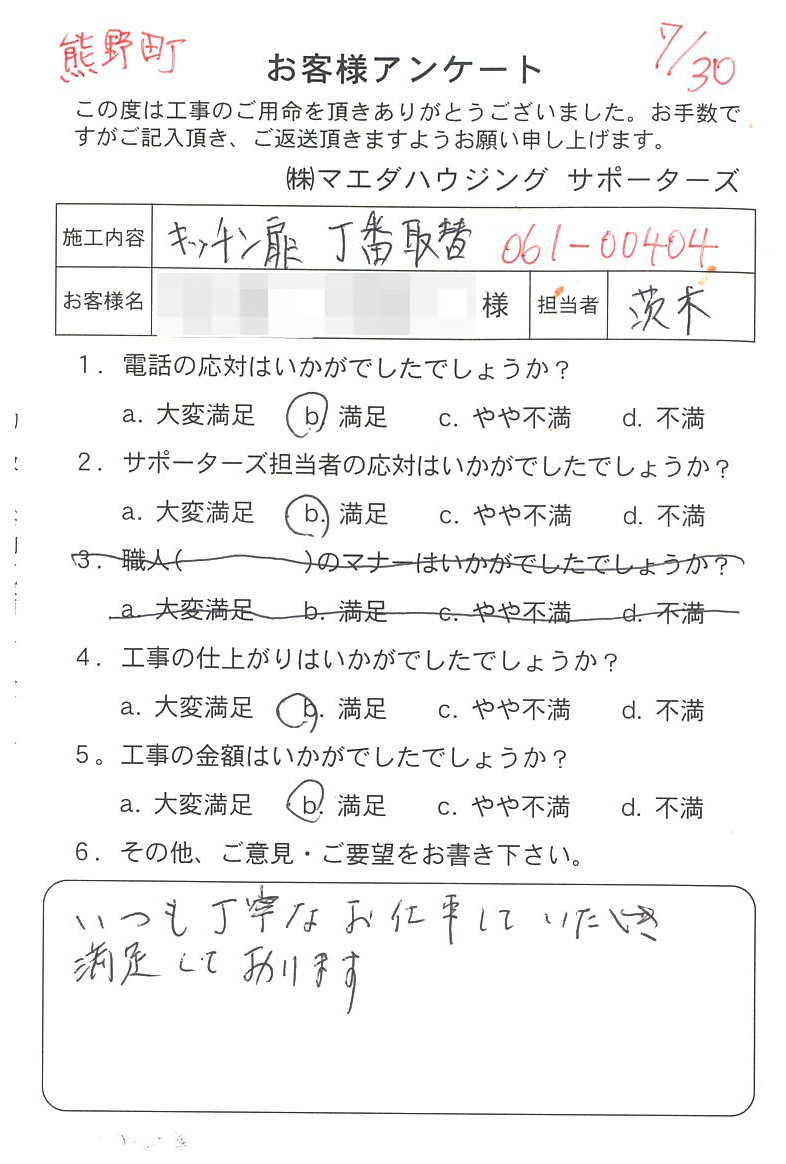 熊野町
7/30
お客様アンケート
この度は工事のご用命を頂きありがとうございました。お手数で
すがご記入頂き、ご返送頂きますようお願い申し上げます。
㈱マエダハウジング サポーターズ
施工内容 キッチン扉 丁番取替 061-00404
お客様名 様 担当者 茨木
1. 電話の応対はいかがでしたでしょうか？
a. 大変満足 b. 満足 c. やや不満 d. 不満
2. サポーターズ担当者の応対はいかがでしたでしょうか？
a. 大変満足 b. 満足 c. やや不満 d. 不満
3. 職人( )のマナーはいかがでしたでしょうか？
a. 大変満足 b. 満足 c. やや不満 d. 不満
4. 工事の仕上がりはいかがでしたでしょうか？
a. 大変満足 b. 満足 c. やや不満 d. 不満
5。工事の金額はいかがでしたでしょうか？
a. 大変満足 b. 満足 c. やや不満 d. 不満
6. その他、ご意見・ご要望をお書き下さい。
いつも丁寧なお仕事していただき
満足しております